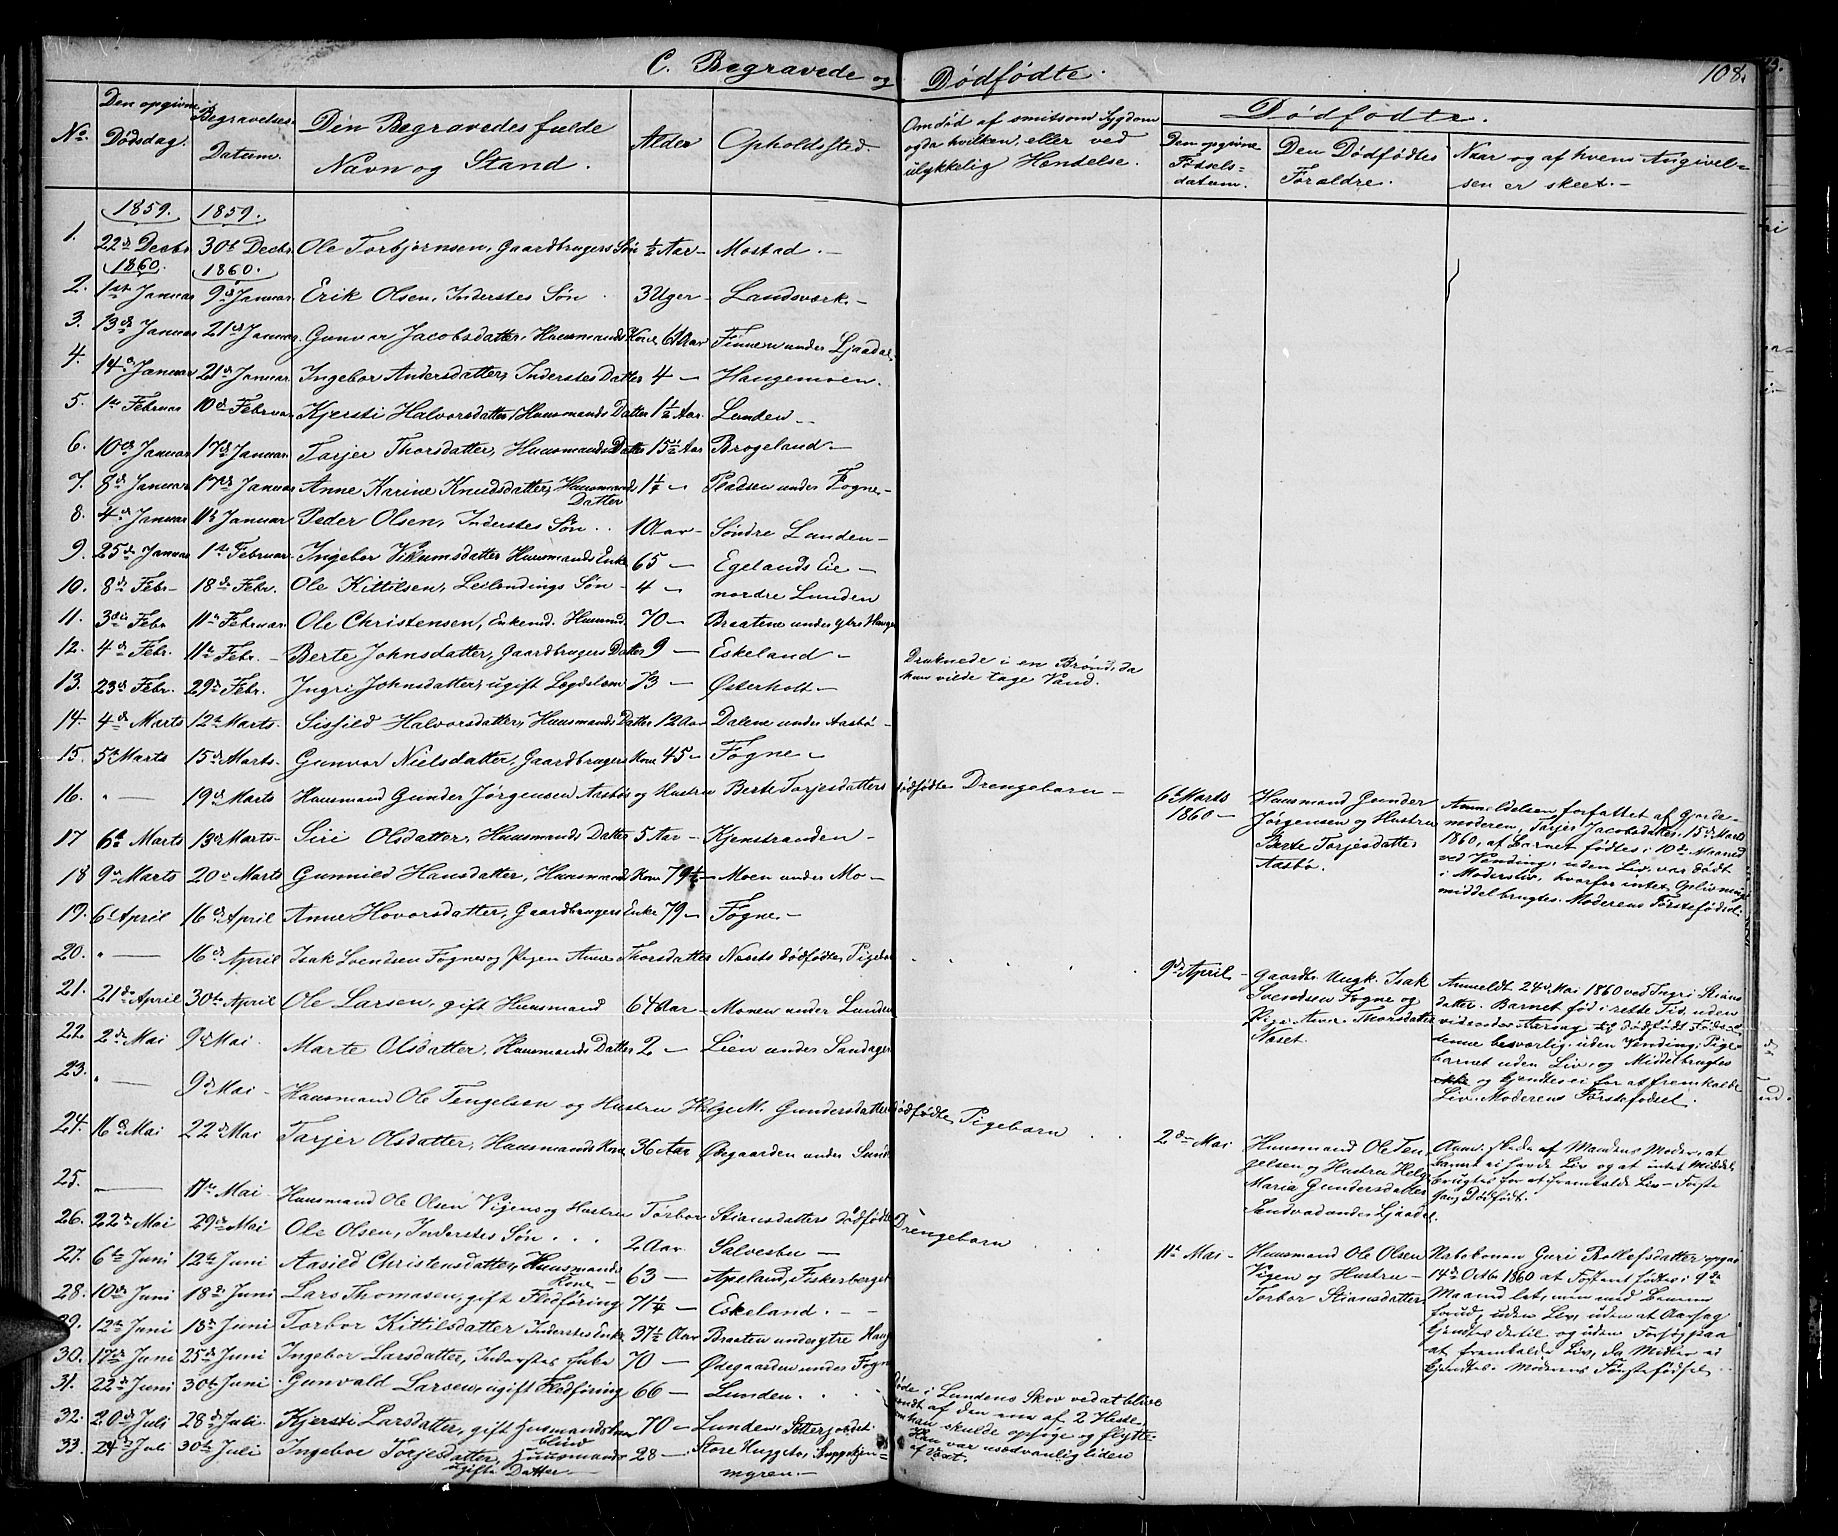 C. Begravede og Dødfødte.
108.
No. Den opgivne Dødsdag. Begravelses Datum. Den Begravedes fulde Navn og Stand. Alder Opholdssted. Om død af smitsom Sygdom og da hvilken, eller ved ulykkelig Hændelse. Dødfødte.
Den opgivne Fødsels-datum. Den Dødfødtes Forældre. Naar og af hvem Angivelsen er skeet.
1859. 1859.
1. 22de Decbr 30te Decbr Ole Torbjørnsen, Gaardbrugers Søn ½ Aar Mostad.
1860. 1860.
2. 1ste Januar 9de Januar Erik Olsen, Inderstes Søn 3 Uger Landsværk.
3. 13de Januar 21de Januar Gunvor Jacobsdatter, Huusmands Kone 61 Aar Finnen under Ljaadal
4. 14de Januar 21de Januar Ingebor Andersdatter, Inderstes Datter 4 — Haugemoen.
5. 1ste Februar 10de Februar Kjersti Halvorsdatter, Huusmands Datter 1½ Aar Lunden
6. 10de Januar 17de Januar Tarjer Thorsdatter, Huusmands Datter 15½ Aar Brogeland
7. 8de Januar 17de Januar Anne Karine Knudsdatter, Huusmands Datter 1¼ — Pladsen under Fogne
8. 4de Januar 11te Januar Peder Olsen, Inderstes Søn 10 Aar Søndre Lunden
9. 25de Januar 1ste Februar Ingebor Villumsdatter Huusmands Enke 65 — Egelands Eie
10. 8de Febr 18de Febr. Ole Kittilsen, Leilendings Søn 4 — nordre Lunden
11. 3die Febr 11te Februar Ole Christensen, Enkemd. Huusmd. 70 — Braatene under ytre Hauge
12. 4de Febr. 11te Febr. Berte Johnsdatter, Gaardbrugers Datter 9 — Eskeland Druknede i en Brønd, da
hun vilde tage Vand.
13. 23de Febr. 29de Febr. Ingri Johnsdatter, ugift Lægdslem 73 — Østerholt
14. 4de Marts 12te Marts Sisfild Halvorsdatter, Huusmands Datter 12 Aar Dalene under Aasbø
15. 5te Marts 15de Marts Gunvor Nielsdatter, Gaardbrugers Kone 45 — Fogne
16. " — 19de Marts Huusmand Gunder Jørgensen Aasbø og Hustru Berte Tarjesdatters dødfødte Drengebarn 6te Marts 1860 Huusmand Gunder Jørgensen og Hustru Berte Tarjesdatter Aasbø.
Anmeldelsen forfattet af Gjorde-
moderen, Tarjer Jacobsdatter, 15de Marts
1860, at Barnet fødtes i 10de Maaned
ved Vending, uden Liv, var dødt
i Modersliv, hvorfor intet Oplivnings
middel brugtes. Moderens Førstefødsel.
17 6te Marts 13de Marts Siri Olsdatter, Huusmands Datter 5 Aar Kjenstranden
18 9de Marts 20de Marts Gunnild Hansdatter, Huusmands Kone 79½ Moen under Mo
19. 6te April 16de April Anne Hovorsdatter, Gaardbrugers Enke 79 — Fogne
20. " — 16de April Isak Svendsen Fogne og Pigen Anne Thorsdatter Næsets dødfødte Pigebarn 9de April Gaardbr. Ungk. Isak Svendsen Fogne og Pige Anne Thorsdatter Næset.
Anmeldt 24de Mai 1860 ved Ingri Stians
datter. Barnet fød i rette Tid, uden
vidende Aarsag til dødfødt Fødsel
denne besværlig, uden Vending; Pige-
barnet uden Liv, og Middel brugtes
ikke og kjendtes ei for at fremkalde
Liv. Moderens Førstefødsel.
21. 21de April 30te April Ole Larsen, gift Huusmand 64 Aar Monen under Lunden
22 2den Mai 9de Mai Marte Olsdatter, Huusmands Datter 2 — Lien under Sandager
23. " — 9de Mai Huusmand Ole Tengelsen og Hustru Helge M. Gundersdatters dødfødte Pigebarn 2den Mai Huusmand Ole Tengelsen og Hustru Helge Maria Gundersdatter Sandvad under Ljaadal.
Anm. skede af Mandens Moder, at
Barnet ei havde Liv og at intet Middel
brugtes for at fremkalde Liv — Første
Gang Dødfødt.
24. 16de Mai 22de Mai Tarjer Olsdatter, Huusmands Kone 36 Aar Øigaarden under Sund
25. — 11te Mai Huusmand Ole Olsen Vigens og Hustru Torbor Stiansdatters dødfødte Drengebarn 11te Mai Huusmand Ole Olsen Vigen og Hustru Torbor Stiansdatter
Herbakonen Guri Rollefsdatter opgav
14de Octbr 1860 at Fosteret fødtes i 9de
Maaned let, men med
forud, uden Liv, uden at Aarsag
kjendtes dertil og uden Forsøg paa
at fremkalde Liv, da Midler ei
kjendtes. Moderens Førstefødsel.
26. 22de Mai 29de Mai Ole Olsen, Inderstes Søn 2 Aar Salvesbu
27. 6te Juni 12te Juni Aasild Christensdatter, Huusmands Kone 63 — Apeland, Fiskerberget
28. 10de Juni 18de Juni Lars Thomasen, gift Flødføring 71¼ Eskeland.
29. 12te Juni 18de Juni Torbor Kittilsdatter Inderstes Enke 37½ Aar Braaten under ytre Haug
30. 17de Juni 25de Juni Ingebor Larsdatter, Inderstes Enke 70 — Ødegaarden under Fogne
31. 22de Juni 30te Juni Gunvald Larsen, ugift Flødføring 66 — Lunden. Døde i Lundens Skov ved at blive
rendt af den ene af 2 Heste,
som han skulde opsøge og flytte.
Han var usædvanlig liden
af Væxt.
32. 20de Juli 28de Juli Kjersti Larsdatter, gift Huusmandskone 70 — Lunden, Sætterjordet
33. 24de Juli 30te Juli Ingebor Torjesdatter, blind Huusmands ugifte Datter 28 — Store Hugsto, Kappekjenmyren